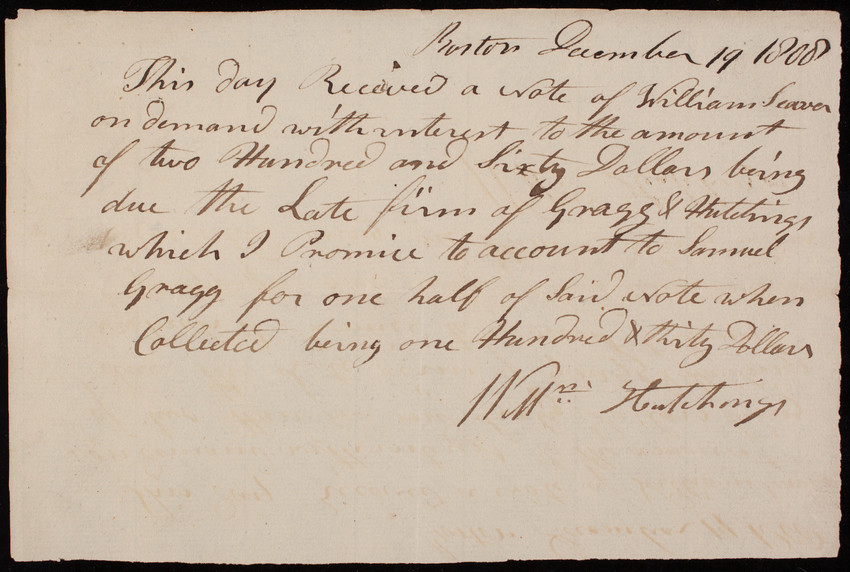 Boston December 19 1808
This day Received a Note of William Seaver
on demand with interest to the amount
of two Hundred and Sixty Dollars being
due the Late firm of Gragg & Hutchings
which I Promice to account to Samuel
Gragg for one half of Said Note when
Collected being one Hundred & thirty Dollars
Wm Hutchings